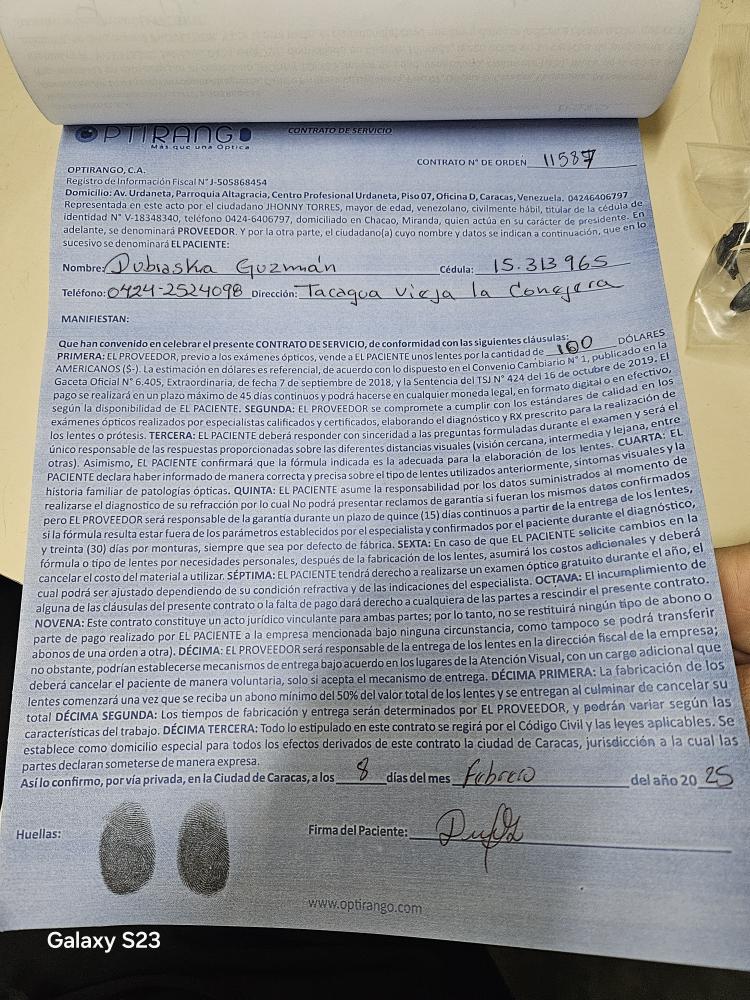 OPTIRANGO
Más que una Óptica
CONTRATO DE SERVICIO
CONTRATO N° DE ORDEN 11587
OPTIRANGO, C.A.
Registro de Información Fiscal N° J-505868454
Domicilio: Av. Urdaneta, Parroquia Altagracia, Centro Profesional Urdaneta, Piso 07, Oficina D, Caracas, Venezuela. 04246406797
Representada en este acto por el ciudadano JHONNY TORRES, mayor de edad, venezolano, civilmente hábil, titular de la cédula de
identidad N° V-18348340, teléfono 0424-6406797, domiciliado en Chacao, Miranda, quien actúa en su carácter de presidente. En
adelante, se denominará PROVEEDOR. Y por la otra parte, el ciudadano(a) cuyo nombre y datos se indican a continuación, que en lo
sucesivo se denominará EL PACIENTE:
Nombre: Dubraska Guzmán Cédula: 15.313965
Teléfono: 0424-2524098 Dirección: Tacagua vieja la Conejera
MANIFIESTAN:
Que han convenido en celebrar el presente CONTRATO DE SERVICIO, de conformidad con las siguientes cláusulas:
PRIMERA: EL PROVEEDOR, previo a los exámenes ópticos, vende a EL PACIENTE unos lentes por la cantidad de 100 DÓLARES
AMERICANOS ($-). La estimación en dólares es referencial, de acuerdo con lo dispuesto en el Convenio Cambiario N° 1, publicado en la
Gaceta Oficial N° 6.405, Extraordinaria, de fecha 7 de septiembre de 2018, y la Sentencia del TSJ N° 424 del 16 de octubre de 2019. El
pago se realizará en un plazo máximo de 45 días continuos y podrá hacerse en cualquier moneda legal, en formato digital o en efectivo,
según la disponibilidad de EL PACIENTE. SEGUNDA: EL PROVEEDOR se compromete a cumplir con los estándares de calidad en los
exámenes ópticos realizados por especialistas calificados y certificados, elaborando el diagnóstico y RX prescrito para la realización de
los lentes o prótesis. TERCERA: EL PACIENTE deberá responder con sinceridad a las preguntas formuladas durante el examen y será el
único responsable de las respuestas proporcionadas sobre las diferentes distancias visuales (visión cercana, intermedia y lejana, entre
otras). Asimismo, EL PACIENTE confirmará que la fórmula indicada es la adecuada para la elaboración de los lentes. CUARTA: EL
PACIENTE declara haber informado de manera correcta y precisa sobre el tipo de lentes utilizados anteriormente, síntomas visuales y la
historia familiar de patologías ópticas. QUINTA: EL PACIENTE asume la responsabilidad por los datos suministrados al momento de
realizarse el diagnostico de su refracción por lo cual No podrá presentar reclamos de garantía si fueran los mismos datos confirmados
pero EL PROVEEDOR será responsable de la garantía durante un plazo de quince (15) días continuos a partir de la entrega de los lentes,
si la fórmula resulta estar fuera de los parámetros establecidos por el especialista y confirmados por el paciente durante el diagnóstico,
y treinta (30) días por monturas, siempre que sea por defecto de fábrica. SEXTA: En caso de que EL PACIENTE solicite cambios en la
fórmula o tipo de lentes por necesidades personales, después de la fabricación de los lentes, asumirá los costos adicionales y deberá
cancelar el costo del material a utilizar. SÉPTIMA: EL PACIENTE tendrá derecho a realizarse un examen óptico gratuito durante el año, el
cual podrá ser ajustado dependiendo de su condición refractiva y de las indicaciones del especialista. OCTAVA: El incumplimiento de
alguna de las cláusulas del presente contrato o la falta de pago dará derecho a cualquiera de las partes a rescindir el presente contrato.
NOVENA: Este contrato constituye un acto jurídico vinculante para ambas partes; por lo tanto, no se restituirá ningún tipo de abono o
parte de pago realizado por EL PACIENTE a la empresa mencionada bajo ninguna circunstancia, como tampoco se podrá transferir
abonos de una orden a otra). DÉCIMA: EL PROVEEDOR será responsable de la entrega de los lentes en la dirección fiscal de la empresa;
no obstante, podrían establecerse mecanismos de entrega bajo acuerdo en los lugares de la Atención Visual, con un cargo adicional que
deberá cancelar el paciente de manera voluntaria, solo si acepta el mecanismo de entrega. DÉCIMA PRIMERA: La fabricación de los
lentes comenzará una vez que se reciba un abono mínimo del 50% del valor total de los lentes y se entregan al culminar de cancelar su
total DÉCIMA SEGUNDA: Los tiempos de fabricación y entrega serán determinados por EL PROVEEDOR, y podrán variar según las
características del trabajo. DÉCIMA TERCERA: Todo lo estipulado en este contrato se regirá por el Código Civil y las leyes aplicables. Se
establece como domicilio especial para todos los efectos derivados de este contrato la ciudad de Caracas, jurisdicción a la cual las
partes declaran someterse de manera expresa.
Así lo confirmo, por vía privada, en la Ciudad de Caracas, a los 8 días del mes Febrero del año 2025
Huellas: Firma del Paciente:
www.optirango.com
Galaxy S23